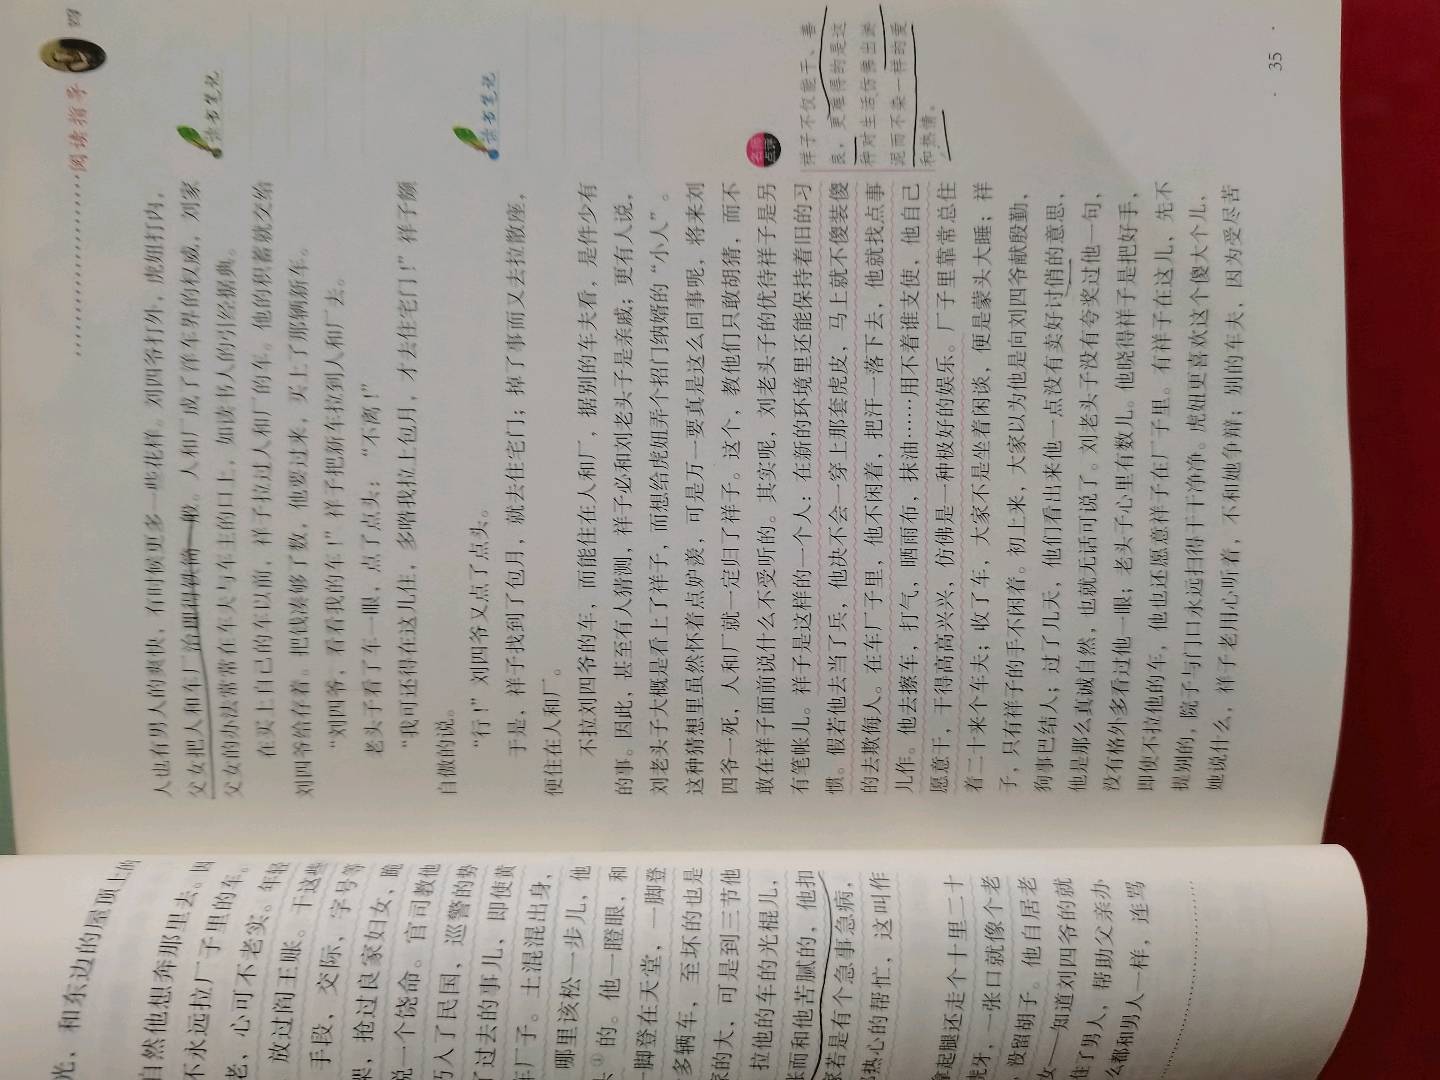 阅读指导
四
人也有男人的爽快，有时候更多一些花样。刘四爷打外，虎妞打内，
父女把人和车厂治理得铁筒一般。人和厂成了洋车界的权威，刘家
父女的办法常常在车夫与车主的口上，如读书人的引经据典。
在买上自己的车以前，祥子拉过人和厂的车。他的积蓄就交给
刘四爷给存着。把钱凑够了数，他要过来，买上了那辆新车。
“刘四爷，看看我的车！”祥子把新车拉到人和厂去。
老头子看了车一眼，点了点头：“不离！”
“我可还得在这儿住，多咱我拉上包月，才去住宅门！”祥子颇
自傲的说。
“行！”刘四爷又点了点头。
于是，祥子找到了包月，就去住宅门；掉了事而又去拉散座，
便住在人和厂。
不拉刘四爷的车，而能住在人和厂，据别的车夫看，是件少有
的事。因此，甚至有人猜测，祥子必和刘老头子是亲戚；更有人说，
刘老头子大概是看上了祥子，而想给虎妞弄个招门纳婿的“小人”。
这种猜想里虽然怀着点妒羡，可是万一要真是这么回事呢，将来刘
四爷一死，人和厂就一定归了祥子。这个，教他们只敢胡猜，而不
敢在祥子面前说什么不受听的。其实呢，刘老头子的优待祥子是另
有笔帐儿。祥子是这样的一个人：在新的环境里还能保持着旧的习
惯。假若他去当了兵，他决不会一穿上那套虎皮，马上就不傻装傻
的去欺侮人。在车厂子里，他不闲着，把汗一落下去，他就找点事
儿作。他去擦车，打气，晒雨布，抹油……用不着谁支使，他自己
愿意干，干得高高兴兴，仿佛是一种极好的娱乐。厂子里靠常总住
着二十来个车夫；收了车，大家不是坐着闲谈，便是蒙头大睡；祥
子，只有祥子的手不闲着。初上来，大家以为他是向刘四爷献殷勤，
狗事巴结人；过了几天，他们看出来他一点没有卖好讨俏的意思，
他是那么真诚自然，也就无话可说了。刘老头子没有夸奖过他一句，
没有格外多看过他一眼；老头子心里有数儿。他晓得祥子是把好手，
即使不拉他的车，他也还愿意祥子在厂子里。有祥子在这儿，先不
提别的，院子与门口永远扫得干干净净。虎妞更喜欢这个傻大个儿，
她说什么，祥子老用心听着，不和她争辩；别的车夫，因为受尽苦
读书笔记
读书笔记
名师
点评
祥子不仅能干、善
良，更难得的是这
种对生活仿佛出淤
泥而不染一样的爱
和热情。
35
光，和东边的屋顶上的
自然他想奔那里去。因
不永远拉厂子里的车。
老，心可不老实。年轻
放过阎王账。干这些
手段，交际，字号等
架，抢过良家妇女，跪
说一个饶命。官司教他
巧入了民国，巡警的势
了过去的事儿，即使黄
车厂子。土混混出身，
哪里该松一步儿，他
的。他一瞪眼，和
一脚登在天堂，一脚登
多辆车，至坏的也是
家的大，可是到三节他
拉他的车的光棍儿，
账而和他苦腻的，他扣
家若是有个急事急病，
热心的帮忙，这叫作
拿起腿还走个十里二十
虎牙，一张口就像个老
没留胡子。他自居老
女——知道刘四爷的就
住了男人，帮助父亲办
么都和男人一样，连骂